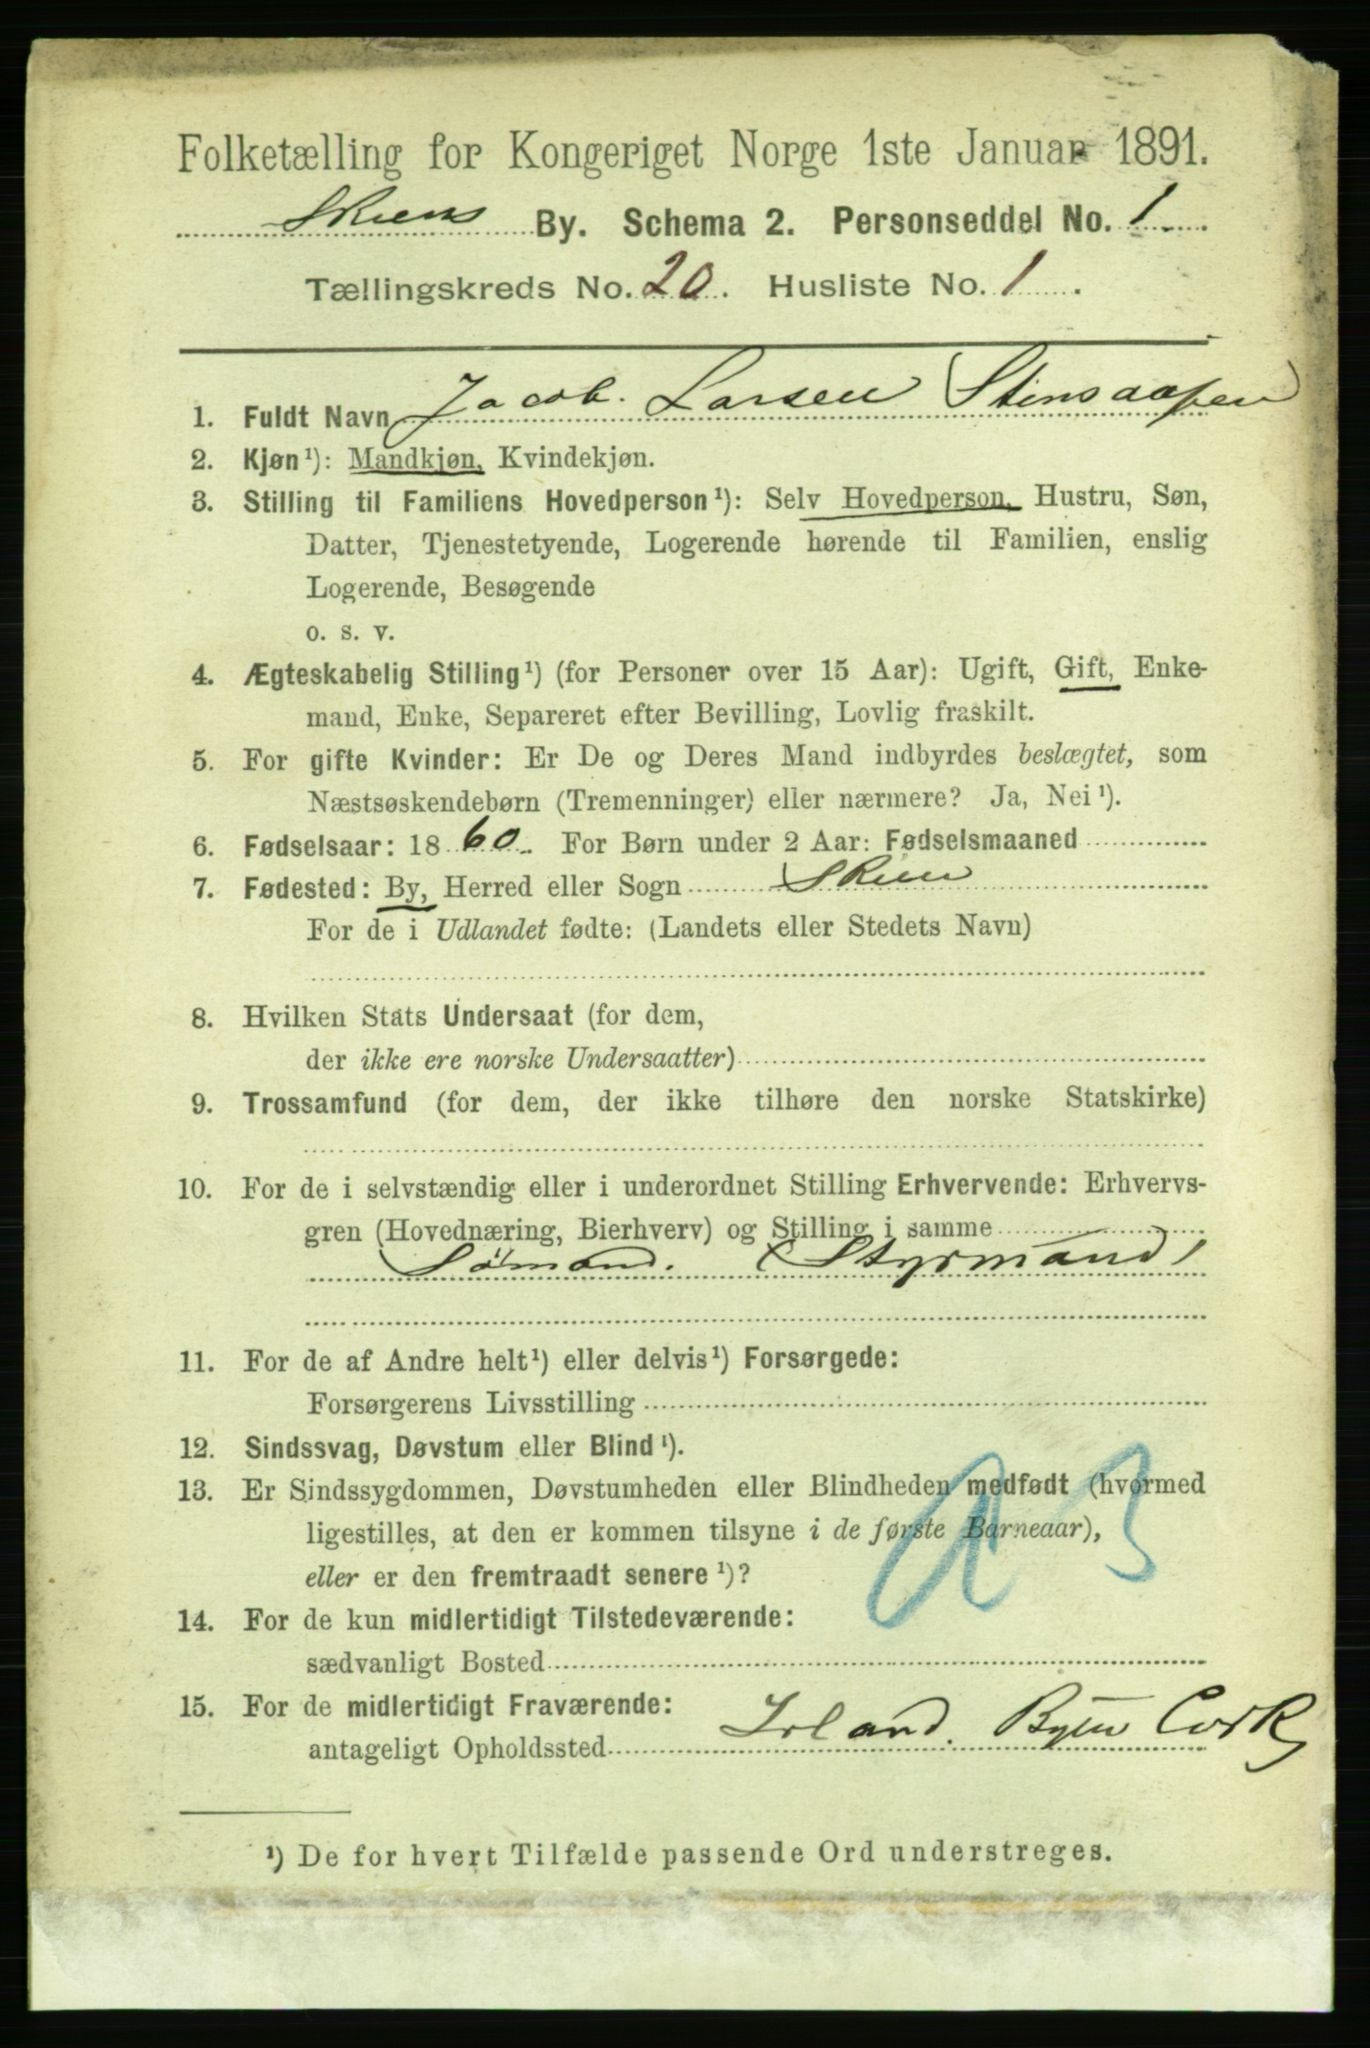 Folketælling for Kongeriget Norge 1ste Januar 1891.
Skiens By. Schema 2. Personseddel No. 1
Tællingskreds No. 20. Husliste No. 1.
1. Fuldt Navn Jacob. Larsen
2. Kjøn¹): Mandkjøn, Kvindekjøn.
3. Stilling til Familiens Hovedperson¹): Selv Hovedperson, Hustru, Søn,
Datter, Tjenestetyende, Logerende hørende til Familien, enslig
Logerende, Besøgende
o. s. v.
4. Ægteskabelig Stilling¹) (for Personer over 15 Aar): Ugift, Gift, Enke-
mand, Enke, Separeret efter Bevilling, Lovlig fraskilt.
5. For gifte Kvinder: Er De og Deres Mand indbyrdes beslægtet, som
Næstsøskendebørn (Tremenninger) eller nærmere? Ja, Nei¹).
6. Fødselsaar: 1860. For Børn under 2 Aar: Fødselsmaaned
7. Fødested: By, Herred eller Sogn Skien
For de i Udlandet fødte: (Landets eller Stedets Navn)
8. Hvilken Stats Undersaat (for dem,
der ikke ere norske Undersaatter)
9. Trossamfund (for dem, der ikke tilhøre den norske Statskirke)
10. For de i selvstændig eller i underordnet Stilling Erhvervende: Erhvervs-
gren (Hovednæring, Bierhverv) og Stilling i samme
Sømand. (Styrmand)
11. For de af Andre helt¹) eller delvis¹) Forsørgede:
Forsørgerens Livsstilling
12. Sindssvag, Døvstum eller Blind¹).
13. Er Sindssygdommen, Døvstumheden eller Blindheden medfødt (hvormed
ligestilles, at den er kommen tilsyne i de første Barneaar),
eller er den fremtraadt senere¹)?
14. For de kun midlertidigt Tilstedeværende:
sædvanligt Bosted
15. For de midlertidigt Fraværende:
antageligt Opholdssted Irland. Byen Cork
¹) De for hvert Tilfælde passende Ord understreges.